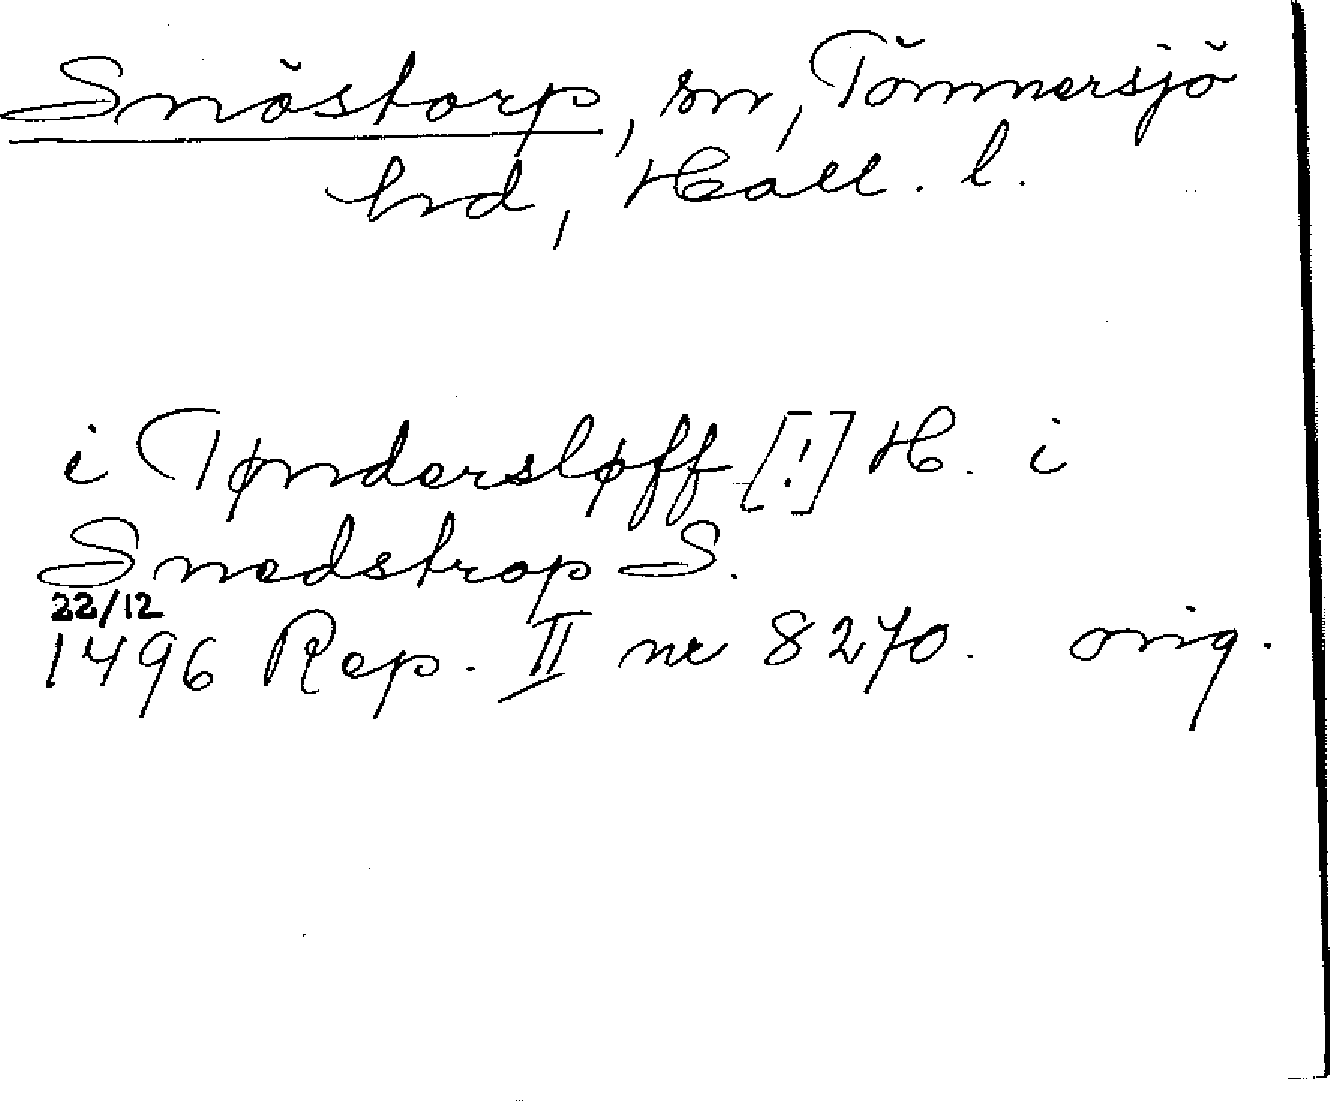 Snöstorp, sn, Tönnersjö
hrd, Hall. l.
i Tøndersløff [!] H. i
Snedstrop S.
22/12
1496 Rep. II nr 8270. orig.